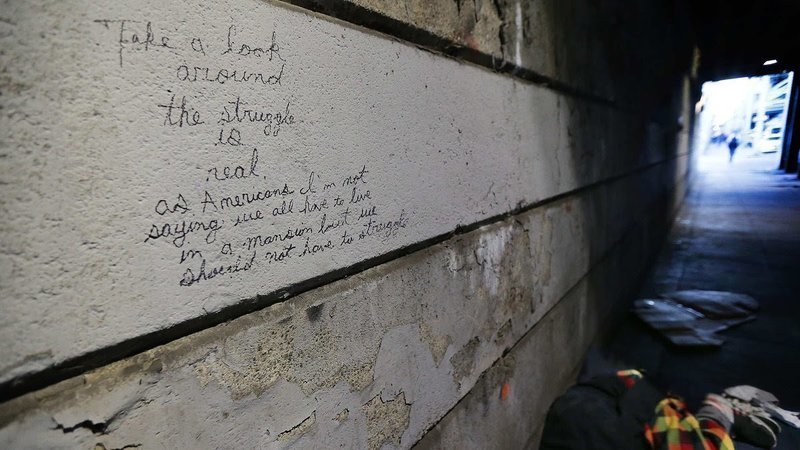 Take a look
around
the struggle
is
real.
as Americans I'm not
saying we all have to live
in a mansion but we
should not have to struggle